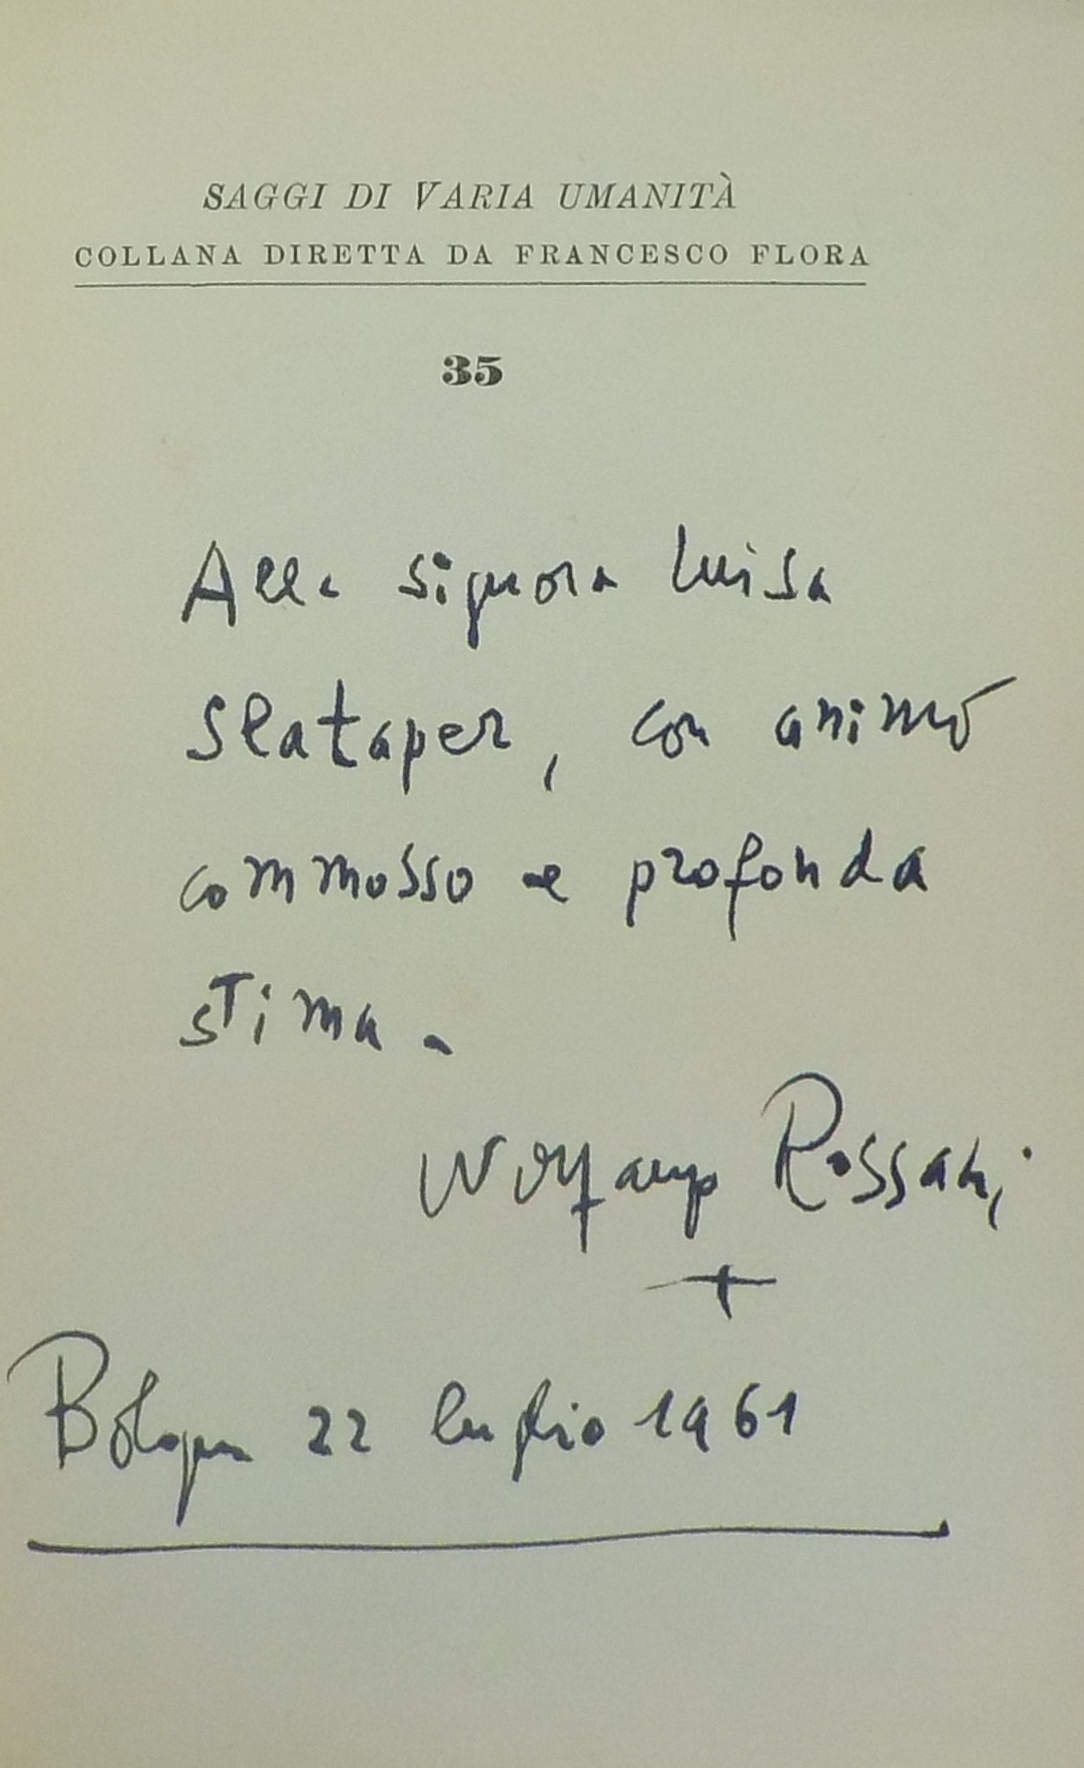 SAGGI DI VARIA UMANITÀ
COLLANA DIRETTA DA FRANCESCO FLORA
35
Alla signora Luisa
Slataper, con animo
commosso e profonda
stima.
Wolfango Rossani
Bologna 22 luglio 1961